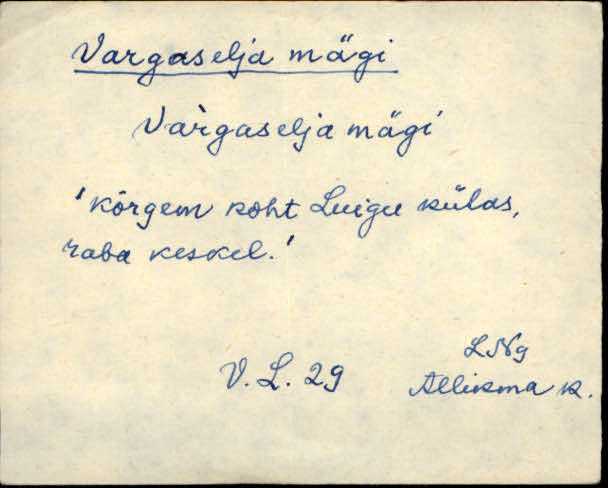 Vargaselja mägi
Var̀gaselja mägi
'kõrgem koht Luigu külas,
raba keskel.'
LNg
V. L. 29
Allikma k.